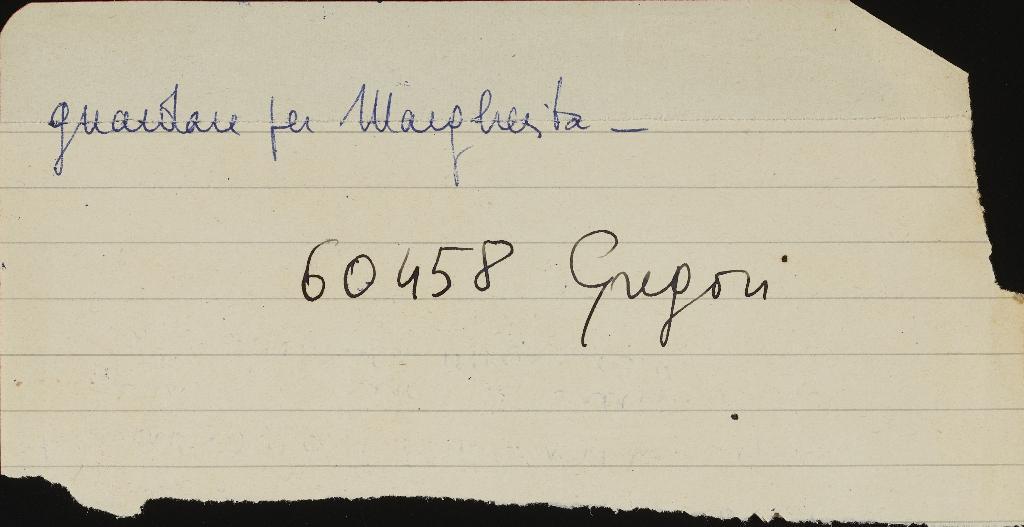 guardare per Margherita –
60458 Gregori